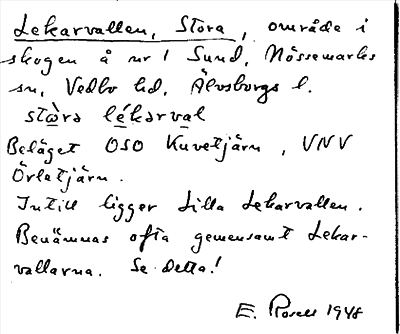 Lekarvallen, Stora, område i
skogen å nr 1 Sund, Nössemarks
sn, Vedbo hd, Älvsborgs l.
stòra lékarval
Beläget OSO Kuvetjärn, VNV
Örletjärn.
Intill ligger Lilla Lekarvallen.
Benämnas ofta gemensamt Lekar-
vallarna. Se detta!
E. Rosell 1948